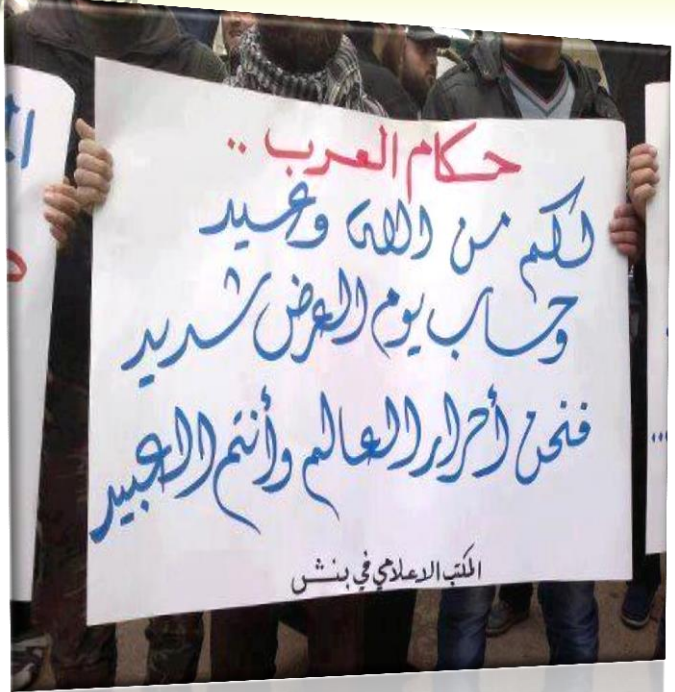 حكام العرب ..
لكم من الله وعيد
وحساب يوم العرض شديد
فنحن أحرار العالم وأنتم العبيد
المكتب الاعلامي في بنش